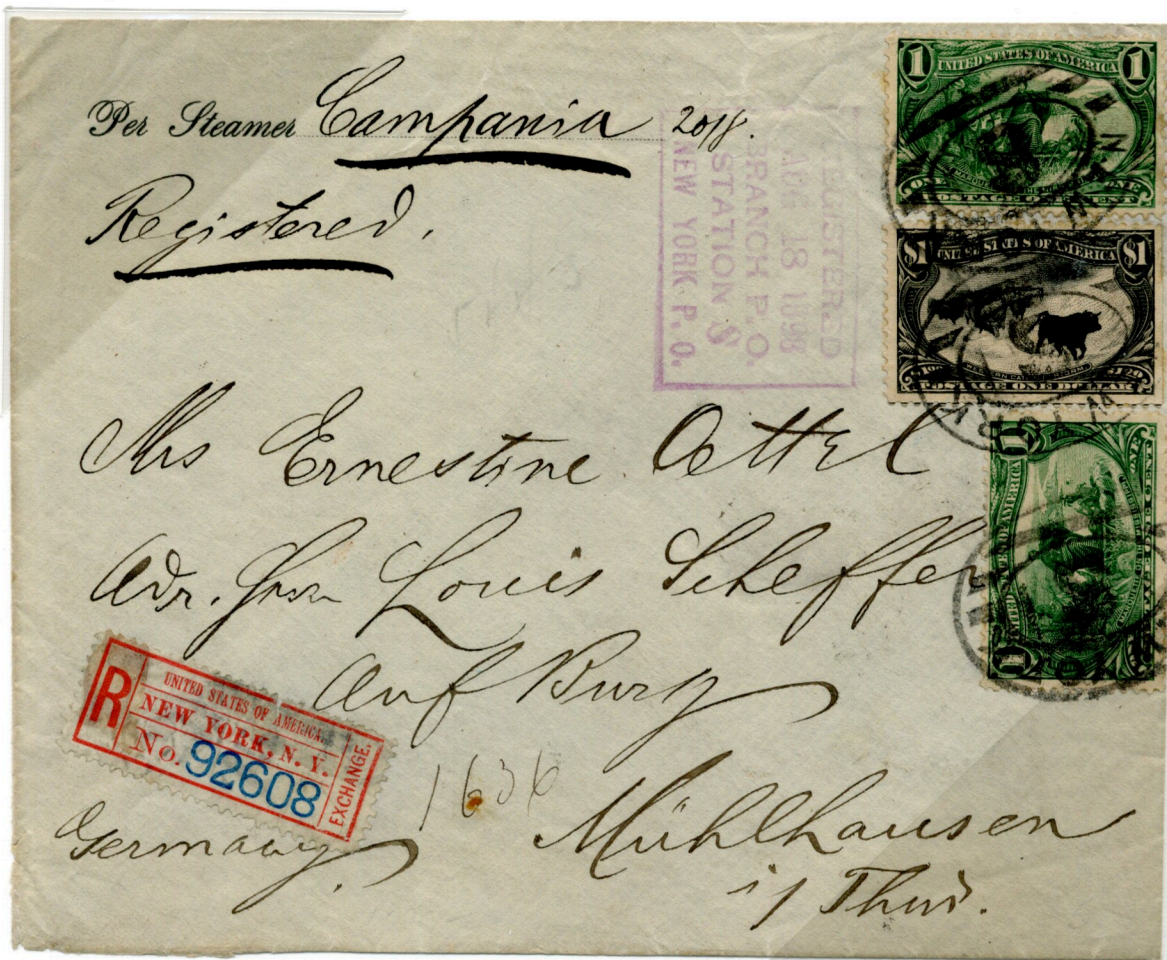 Per Steamer Campania 20/8.
Registered.
REGISTERED
AUG 18 1898
BRANCH P. O.
STATION S
NEW YORK P. O.
1 UNITED STATES OF AMERICA 1
ONE ONE
POSTAGE ONE CENT
$1 UNITED STATES OF AMERICA $1
POSTAGE ONE DOLLAR
NEW YORK
1 UNITED STATES OF AMERICA
1
Mrs Ernestine Oettel
Adr. Herrn Louis Scheffer
Auf Burg
R
UNITED STATES OF AMERICA.
NEW YORK, N. Y.
No. 92608
EXCHANGE.
1636
Mühlhausen
i/ Thür.
Germany.